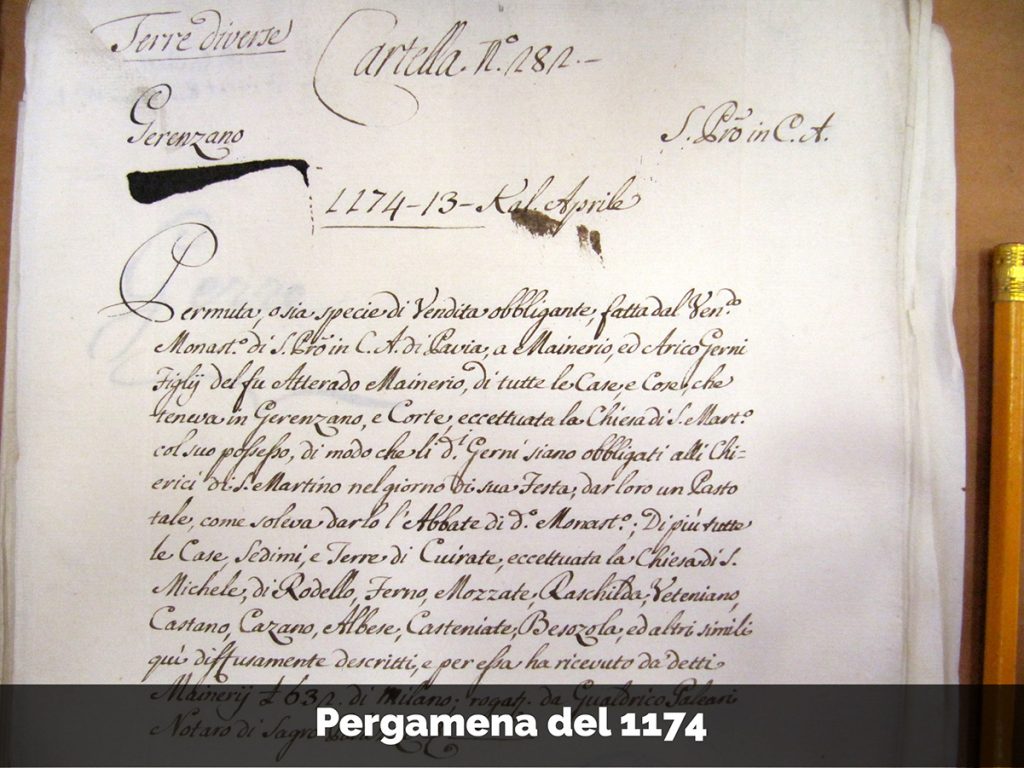 Terre diverse
Cartella. N.º 282.-
Gerenzano
S. Prõ in C. A.
1174-13- Kal. Aprile
Permuta, o sia specie di Vendita obbligante, fatta dal Ven.do
Monast.º di S. Prõ in C. A. di Pavia, a Mainerio, ed Arico Gerni
Figlij del fu Atterado Mainerio, di tutte le Case, e Cose, che
teneva in Gerenzano, e Corte, eccettuata la Chiesa di S. Mart.º
col suo possesso, di modo che li d.i Gerni siano obbligati alli Chi=
erici di S. Martino nel giorno di sua Festa, dar loro un Pasto
tale, come soleva darlo l'Abbate di d.º Monast.º; Di più tutte
le Case, Sedimi, e Terre di Cuirate, eccettuata la Chiesa di S.
Michele, di Rodello, Ferno, Mozzate, Raschilda, Veteniano,
Castano, Cazano, Albese, Casteniate, Besozola, ed altri simili
quì diffusamente descritti, e per essa ha ricevuto da detti
Mainerij £ 632. di Milano; rogat. da Gualdrico Paleari
Notaro di Sagro
Pergamena del 1174